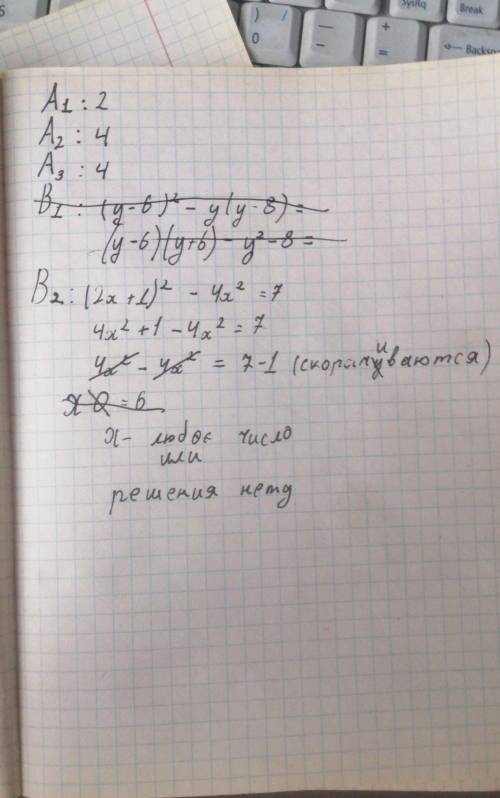 SysRq
Break
)
0
—
–
+
=
Backsp
A1 : 2
A2 : 4
A3 : 4
B1 : (y-6)² - y(y-8) =
(y-6)(y+6) - y² - 8 =
B2 : (2x+1)² - 4x² = 7
4x² + 1 - 4x² = 7
4x² - 4x² = 7-1 (скорачиваются)
x 0 = 6
x - любое число
или
решения нету